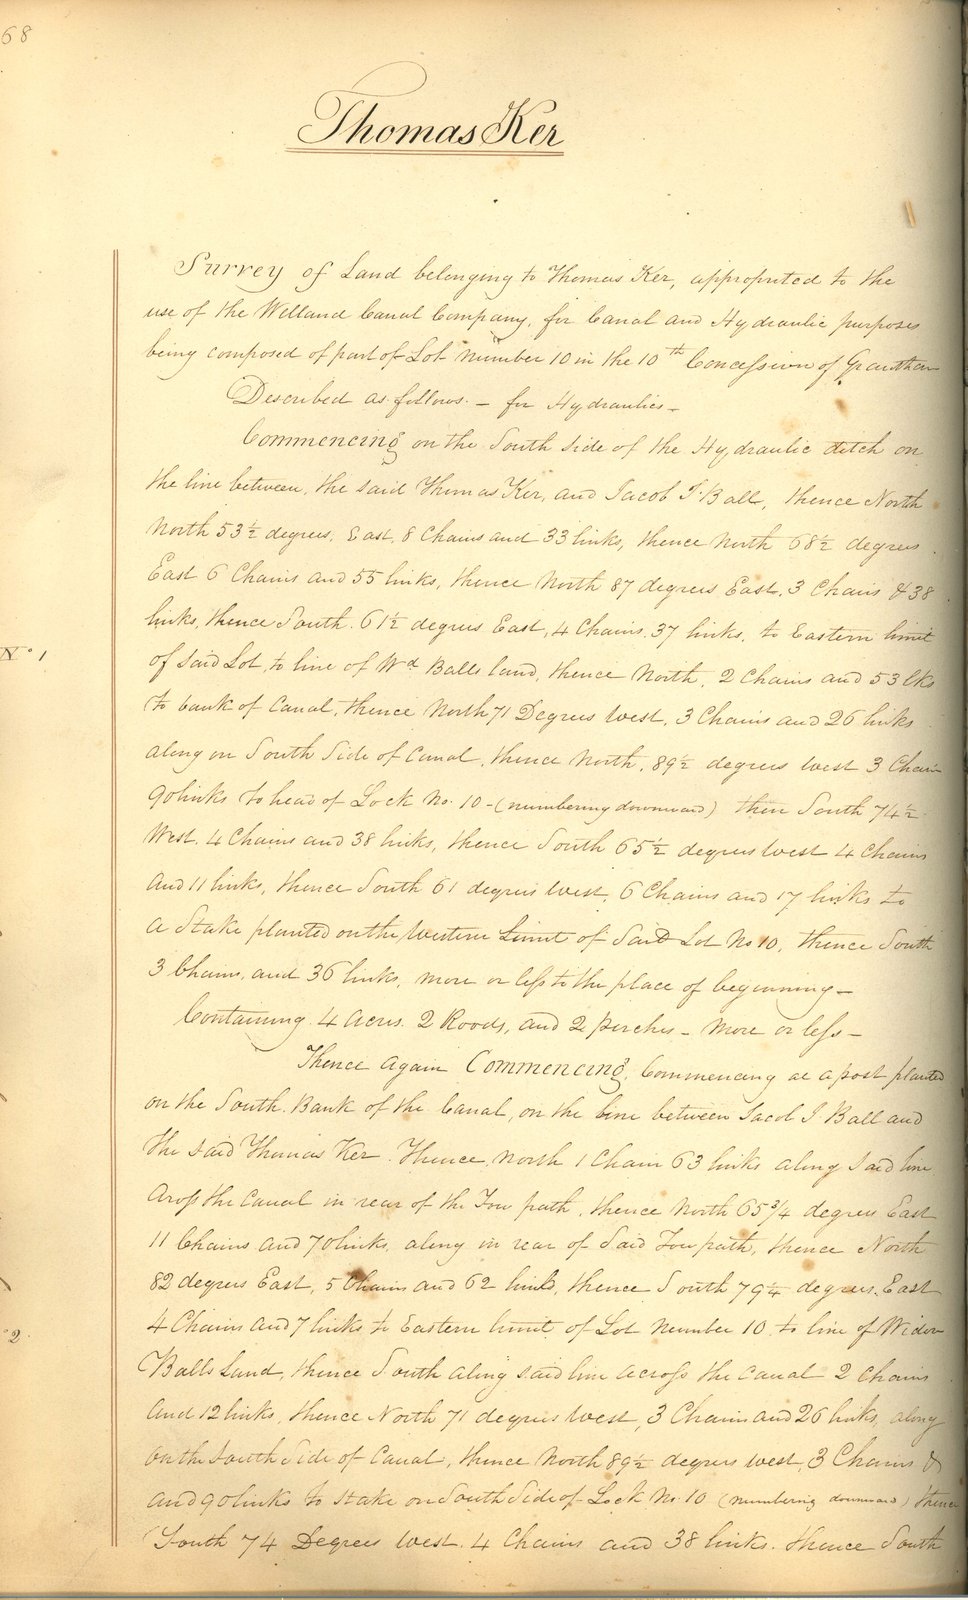 68
Thomas Ker
Survey of Land belonging to Thomas Ker, appropriated to the
use of the Welland Canal Company, for Canal and Hydraulic purposes
being composed of part of Lot number 10 in the 10th Concession of Grantham
Described as follows. — for Hydraulics —
Commencing on the South side of the Hydraulic ditch on
the line between, the said Thomas Ker, and Jacob I. Ball, thence North
North 53 1/2 degrees, East, 8 Chains and 33 links, thence North 68 1/2 degrees
East 6 Chains and 55 links, thence North 87 degrees East, 3 Chains & 38
links, thence South. 61 1/2 degrees East, 4 Chains. 37 links, to Eastern limit
No 1
of said Lot, to line of Wd Balls land, thence North, 2 Chains and 53 lks
to bank of Canal, thence North 71 Degrees West, 3 Chains and 26 links
along on South Side of Canal, thence North, 89 1/2 degrees West 3 Chain
90 links to head of Lock No. 10 - (numbering downward) then South 74 1/2
West, 4 Chains and 38 links, thence South 65 1/2 degrees West 4 Chains
and 11 links, thence South 61 degrees West, 6 Chains and 17 links to
a Stake planted on the Western Limit of Said Lot No 10, thence South
3 Chains, and 36 links, more or less to the place of beginning —
Containing. 4 Acres. 2 Roods, and 2 perches — more or less —
Thence Again Commencing, Commencing at a post planted
on the South. Bank of the Canal, on the line between Jacob I Ball and
the said Thomas Ker. Thence, North 1 Chain 63 links along Said line
Across the Canal in rear of the Tow path, thence North 65 3/4 degrees East
11 Chains and 70 links, along in rear of Said Tow path, thence North
82 degrees East, 5 Chains and 62 links, thence South 79 1/4 degrees. East
2.
4 Chains and 7 links to Eastern limit of Lot number 10 to line of Widow
Balls Land, thence South along said line across the Canal 2 Chains
and 12 links, thence North 71 degrees West, 3 Chains and 26 links, along
on the South Side of Canal, thence North 89 1/2 degrees West, 3 Chains &
and 90 links to stake on South Side of Lock No. 10 (numbering downward) thence
South 74 Degrees West. 4 Chains and 38 links. thence South